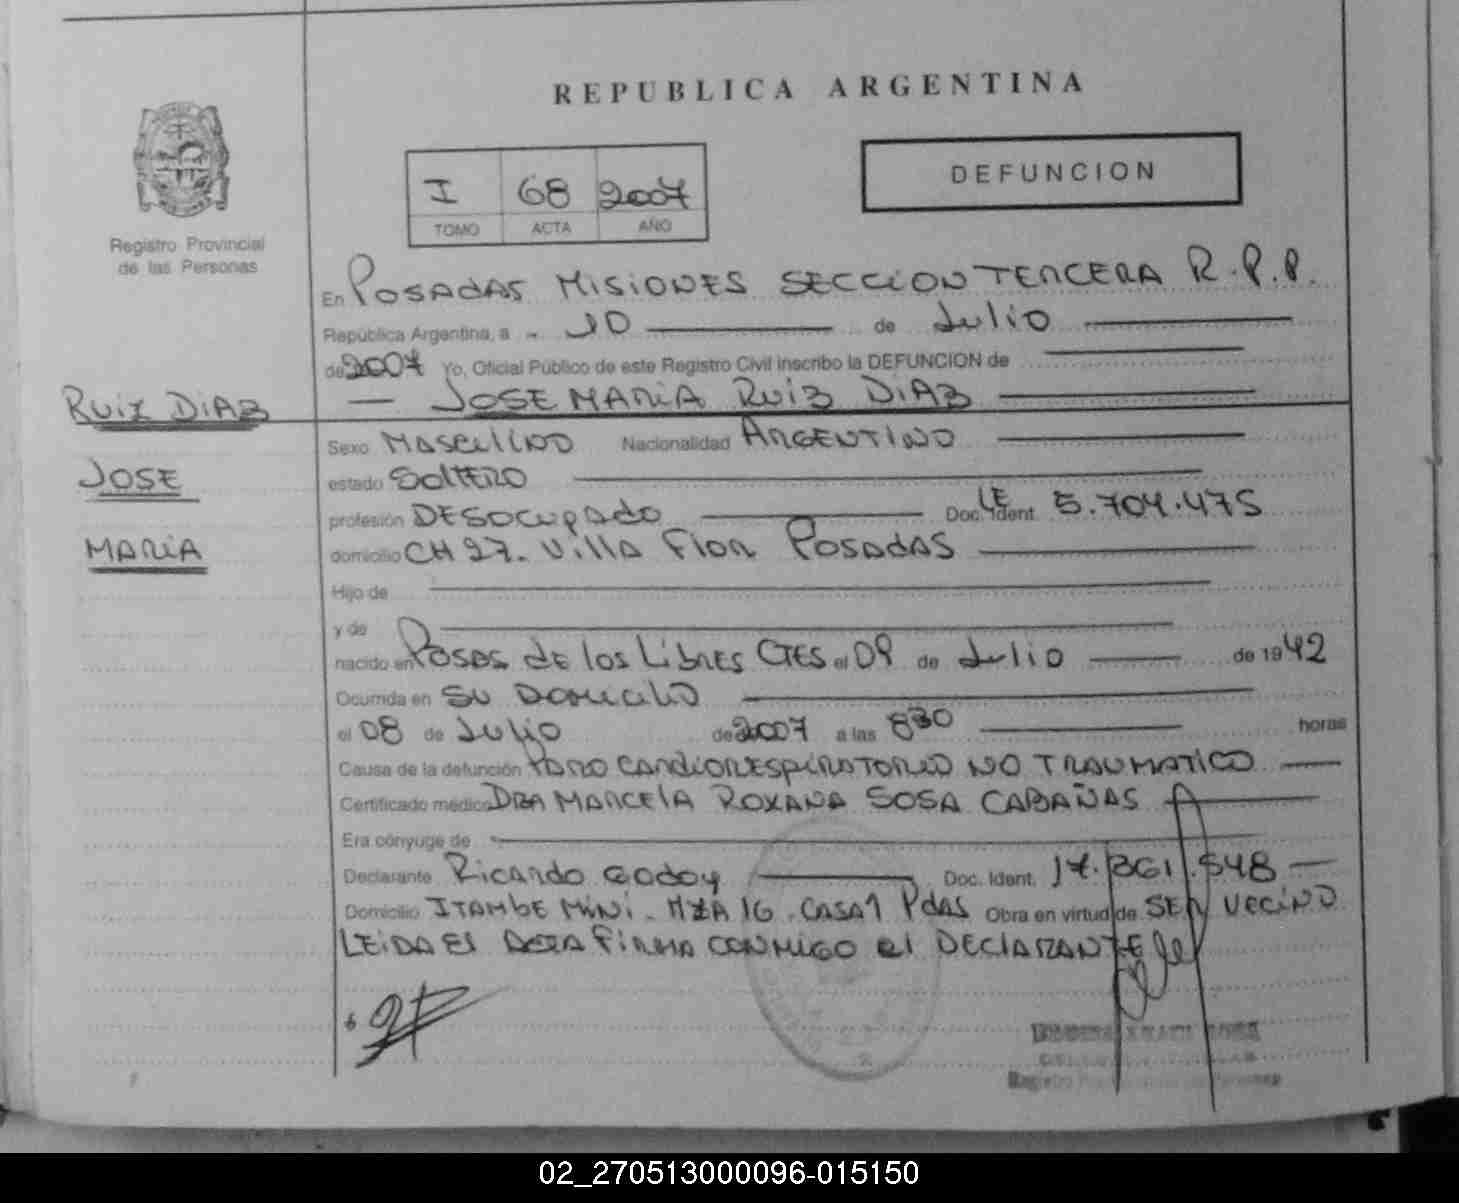 REPUBLICA ARGENTINA
I 68 2007
TOMO ACTA AÑO
DEFUNCION
Registro Provincial
de las Personas
En POSADAS MISIONES SECCION TERCERA R.P.P.
República Argentina, a 10 de Julio
de 2007 Yo, Oficial Público de este Registro Civil inscribo la DEFUNCION de
JOSE MARIA RUIZ DIAZ
RUIZ DIAZ
JOSE
MARIA
Sexo MASCULINO Nacionalidad ARGENTINO
estado SOLTERO
profesión DESOCUPADO Doc. Ident. LE 5.704.475
domicilio CH 27. Villa Flor POSADAS
Hijo de
y de
nacido en POSAS de los LIBRES CTES el 09 de Julio de 1942
Ocurrida en SU DOMICILIO
el 08 de Julio de 2007 a las 830 horas
Causa de la defunción PARO CARDIORESPIRATORIO NO TRAUMATICO
Certificado médico DRA MARCELA ROXANA SOSA CABAÑAS
Era cónyuge de
Declarante Ricardo Godoy Doc. Ident. 17.861.548
Domicilio ITAMBE MINI. MZA 16. CASA 1 Pdas Obra en virtud de SER VECINO
LEIDA EL ACTA FIRMA CONMIGO el DECLARANTE
Registro
02_270513000096-015150